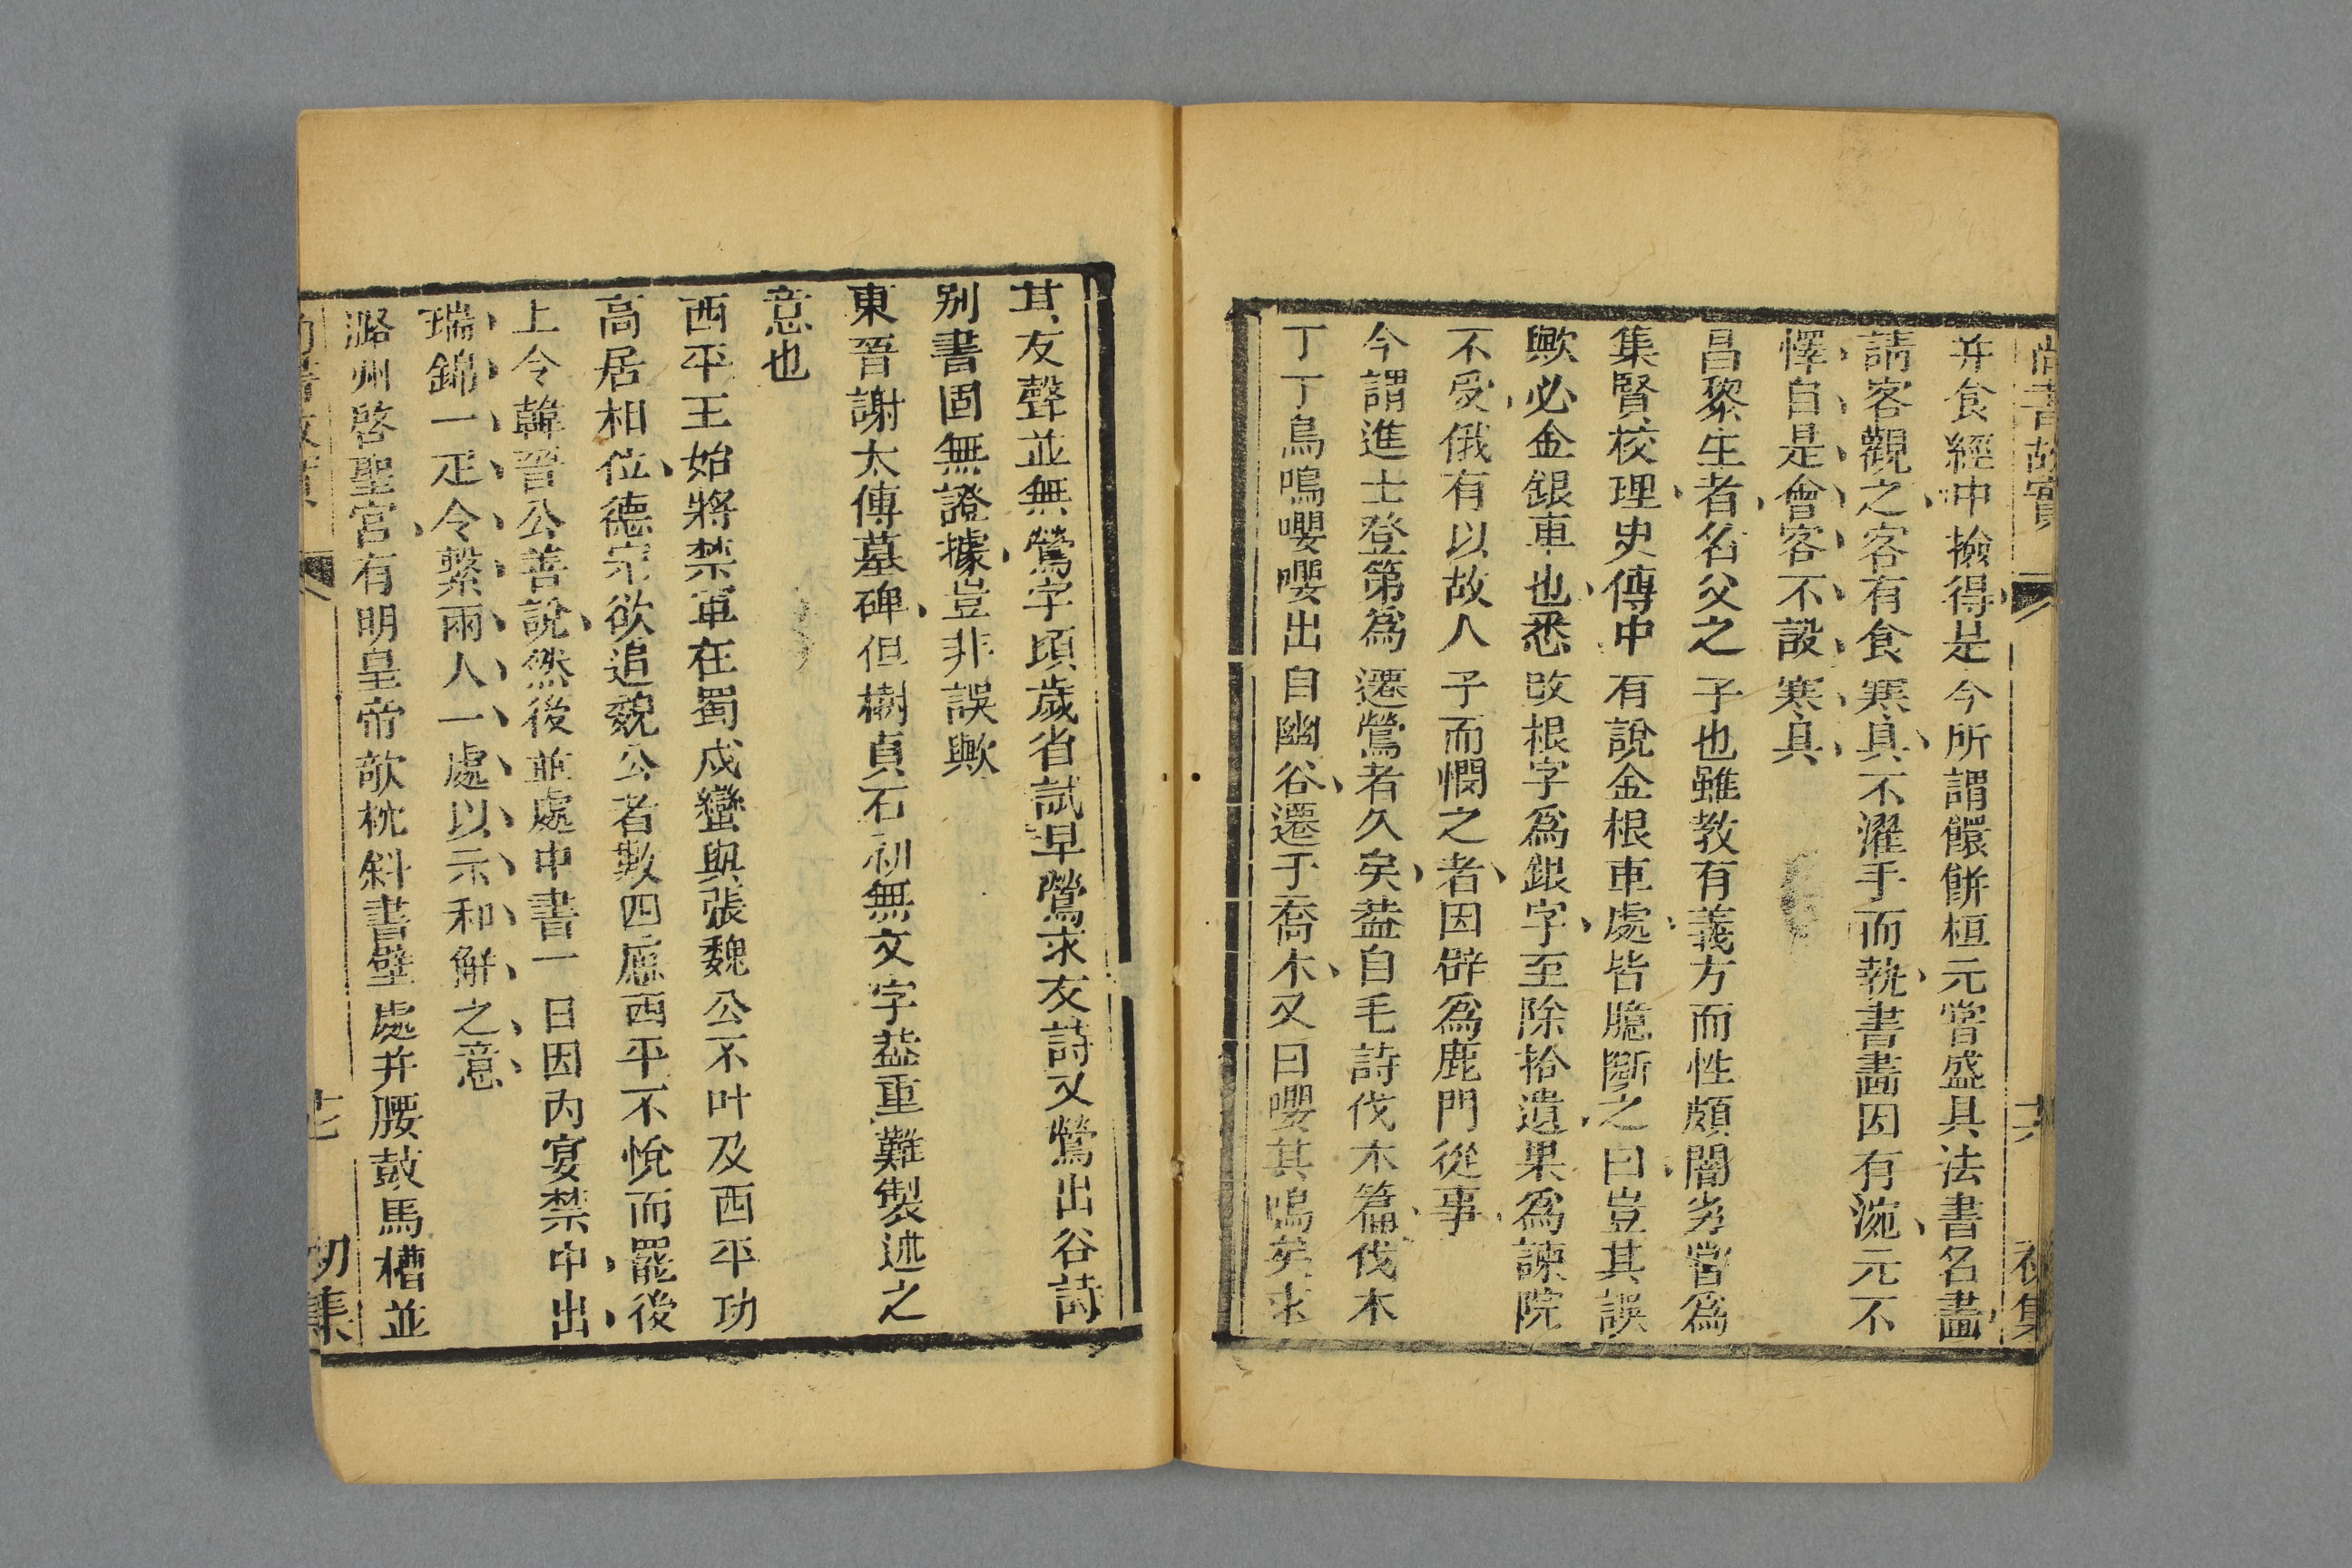 尚書故實 六 初集
并食經中撿得是今所謂饌餅桓元嘗盛具法書名畵
請客觀之客有食寒具不濯手而執書畵因有涴元不
懌自是會客不設寒具
昌黎生者名父之子也雖教有義方而性頗闇劣嘗爲
集賢校理史傳中有說金根車處皆臆斷之曰豈其誤
歟必金銀車也悉改根字爲銀字至除拾遺果爲諫院
不受俄有以故人子而憫之者因辟爲鹿門從事
今謂進士登第爲遷鶯者久矣葢自毛詩伐木篇伐木
丁丁鳥鳴嚶嚶出自幽谷遷于喬木又曰嚶其鳴矣求
其友聲並無鶯字頃歲省試早鶯求友詩又鶯出谷詩
别書固無證據豈非誤歟
東晉謝太傅墓碑但樹貞石初無文字葢重難製述之
意也
西平王始將禁軍在蜀戍蠻與張魏公不叶及西平功
高居相位德宗欲追魏公者數四慮西平不悅而罷後
上令韓晉公善說然後並處中書一日因内宴禁中出
瑞錦一疋令繫兩人一處以示和解之意
潞州啓聖宫有明皇帝欹枕斜書壁處并腰鼓馬槽並
書故實 七 初集